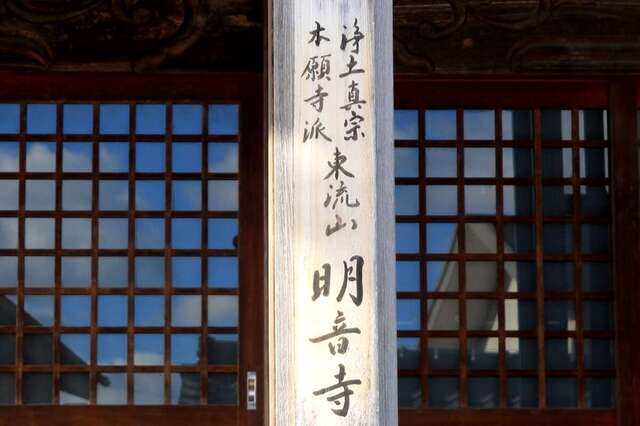 浄土真宗
本願寺派
東流山
明音寺